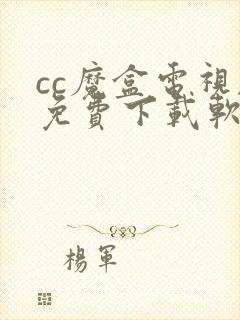 cc魔盒電視
免費下載軟
楊軍